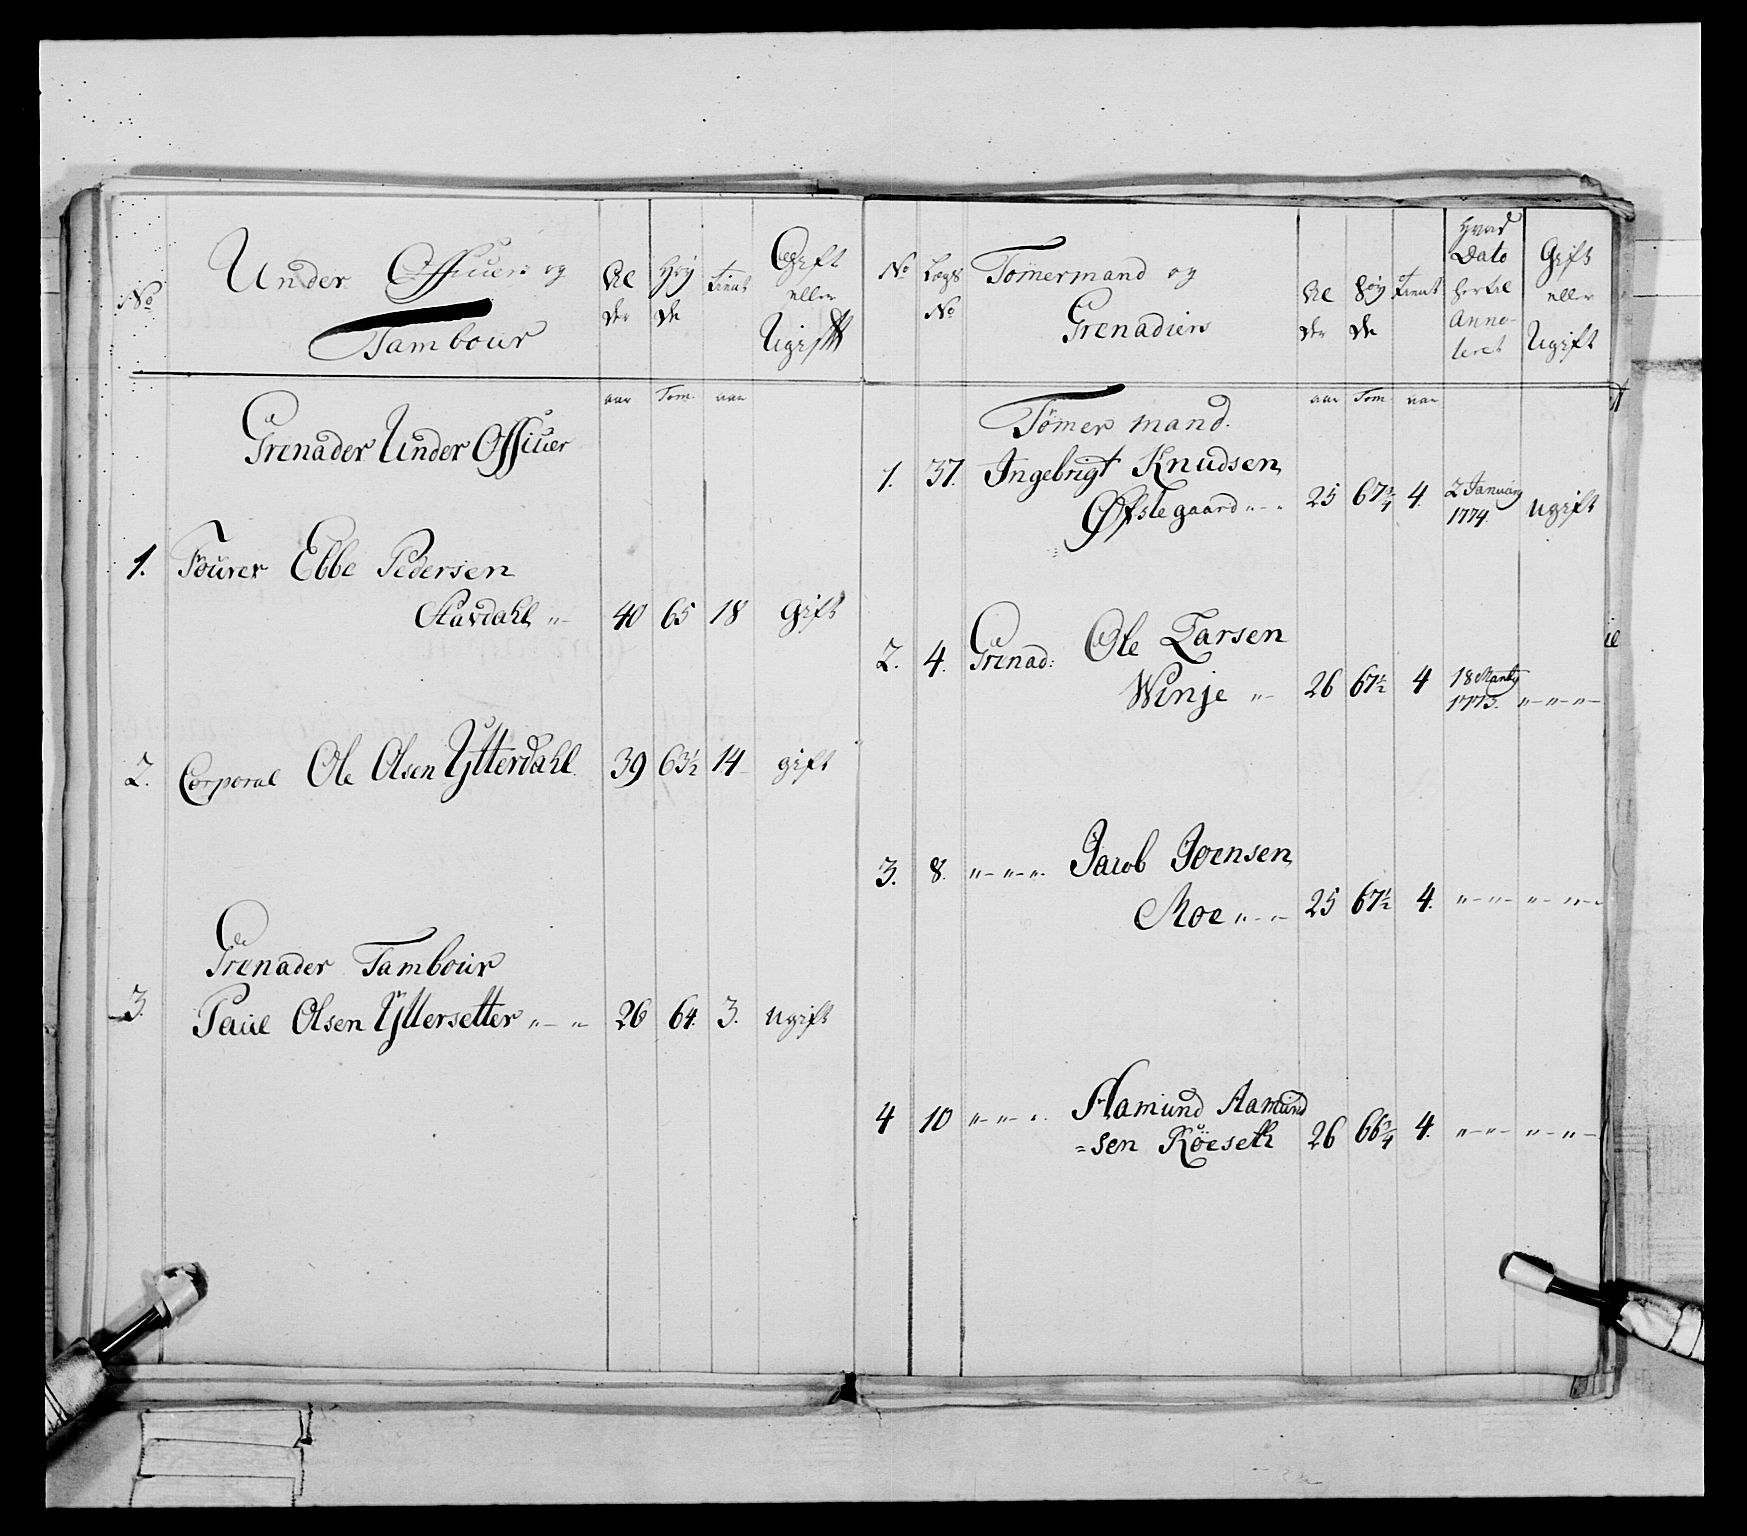 No
Under Officiers og
Tambour
Al
der
Høy
de
tient
Gift
eller
Ugift
aar Tom. aar
Grenader Under Officier
1. Fourer Ebbe Pedersen
Stavdahl „ - 40 65 18 Gift
2. Corporal Ole Olsen Ytterdahl 39 63½ 14 gift
Grenader Tambour
3. Paul Olsen Yttersetter „ - „ 26 64. 3. Ugift
No
Lægs
No
Tømermand og
Grenadiers
Al
der
Høy
de
tient
Hvad
Dato
hertil
Anno-
teret
Gift
eller
Ugift
aar Tom. aar
Tømer mand.
1. 37. Ingebrigt Knudsen
Øfstegaard „ - „ 25 67¾ 4. 2 January 1774. Ugift
2. 4. Grenad: Ole Larsen
Winje „ - 26 67½ 4 18 1775. „ - „ - „ -
3. 8. „ - „ - „ Jacob Joensen
Moe „ - „ - 25 67½ 4. „ - „ - „ - „ -
4 10 „ - „ - „ Aamund Aamund
=sen Röeseth 26 66¾ 4. „ - „ - „ - „ -